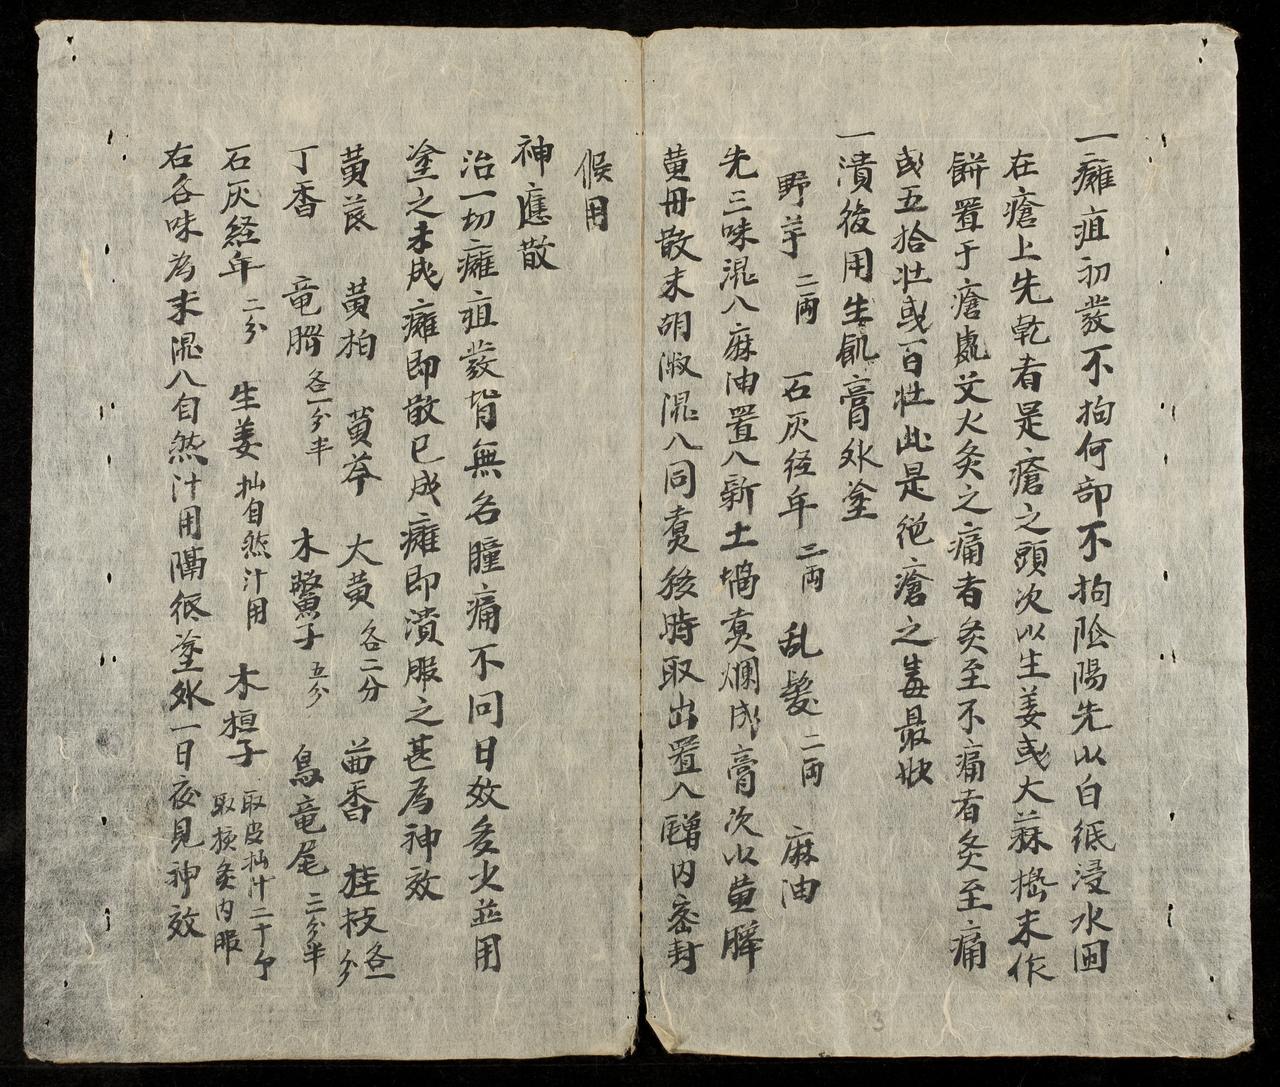 一癰疽初發不拘何部不拘陰陽先以白紙浸水囬
在瘡上先乾者是瘡之頭次以生姜或大蒜搗末作
餅置于瘡處艾火灸之痛者灸至不痛者灸至痛
或五拾壯或百壯此是絕瘡之毒最快
一潰後用生飢膏外塗
野芋二両 石灰経年二両 乱髮二両 麻油
先三味混入麻油置入新土堝煑爛成膏次以黄
黄丹散末胡淑混入同煑後時取出置入內密封
候用
神應散
治一切癰疽發背無名腫痛不同日效多少並用
塗之未成癰即散已成癰即潰服之甚為神效
黄芪 黄柏 黄芩 大黄各二分 茴香 桂枝各一分
丁香 竜脳各一分半 木鱉子五分 烏竜尾三分半
石灰経年二分 生姜搗自然汁用 木桓子取皮搗汁二十分取核灸內服
右各味為末混入自然汁用隔紙塗外一日夜見神效
3